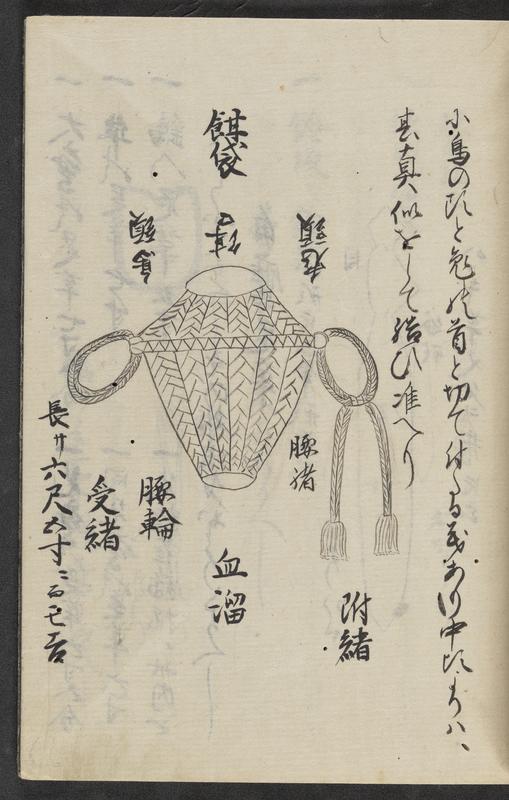 小鳥の頭と兎の首と切て付る義あり中頃よりハ、
其真似をして結ひ准へり
餌袋
兎頭
鳥頭
腰緒
附緒
血溜
腰輪
受緒
長サ六尺五寸